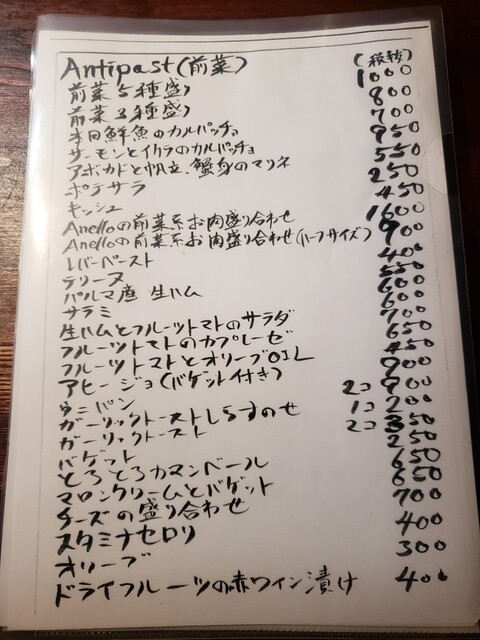 Antipast(前菜) (税抜)
前菜5種盛り 1000
前菜3種盛り 800
本日鮮魚のカルパッチョ 700
サーモンとイクラのカルパッチョ 950
アボカドと帆立、蟹身のマリネ 550
ポテサラ 250
キッシュ 450
Anelloの前菜系お肉盛り合わせ 1600
Anelloの前菜系お肉盛り合わせ(ハーフサイズ) 900
レバーペースト 400
テリーヌ 550
パルマ産 生ハム 600
サラミ 600
生ハムとフルーツトマトのサラダ 700
フルーツトマトのカプレーゼ 650
フルーツトマトとオリーブOIL 450
アヒージョ(バゲット付き) 900
ウニパン 2コ 900
ガーリックトーストしらすのせ 1コ 200
ガーリックトースト 2コ 350
バゲット 250
とろとろカマンベール 650
マロンクリームとバゲット 650
チーズの盛り合わせ 700
スタミナセロリ 400
オリーブ 300
ドライフルーツの赤ワイン漬け 400